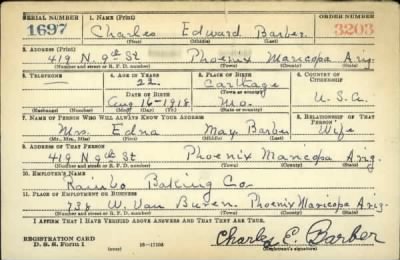 SERIAL NUMBER 1. NAME (Print) ORDER NUMBER
1697 Charles Edward Barber 3203
(First) (Middle) (Last)
2. ADDRESS (Print)
419 N. 9th St Phoenix Maricopa Ariz.
(Number and street or R. F. D. number) (Town) (County) (State)
3. TELEPHONE 4. AGE IN YEARS 5. PLACE OF BIRTH 6. COUNTRY OF CITIZENSHIP
22 Carthage
(Town or county)
DATE OF BIRTH
Aug 16-1918 Mo. U.S.A.
(Exchange) (Number) (Mo.) (Day) (Yr.) (State or country)
7. NAME OF PERSON WHO WILL ALWAYS KNOW YOUR ADDRESS 8. RELATIONSHIP OF THAT PERSON
Mrs. Edna May Barber Wife
(Mr., Mrs., Miss) (First) (Middle) (Last)
9. ADDRESS OF THAT PERSON
419 N 9th St Phoenix Maricopa Ariz.
(Number and street or R. F. D. number) (Town) (County) (State)
10. EMPLOYER'S NAME
Rainbo Baking Co.
11. PLACE OF EMPLOYMENT OR BUSINESS
738 W. Van Buren. Phoenix Maricopa Ariz.
(Number and street or R. F. D. number) (Town) (County) (State)
I AFFIRM THAT I HAVE VERIFIED ABOVE ANSWERS AND THAT THEY ARE TRUE.
REGISTRATION CARD
D. S. S. Form 1 Charles E. Barber
(Registrant's signature)